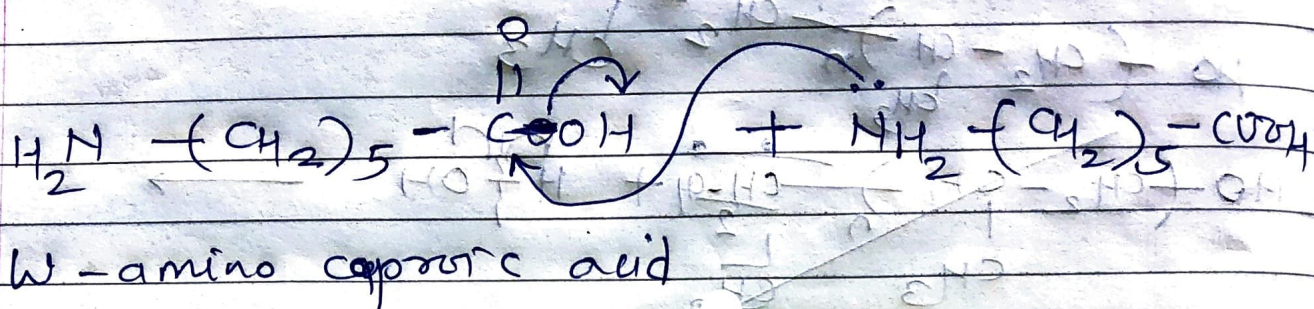 O
||
H₂N -(CH₂)₅ - C-OH + N̈H₂ -(CH₂)₅ - COOH
W-amino caproic acid